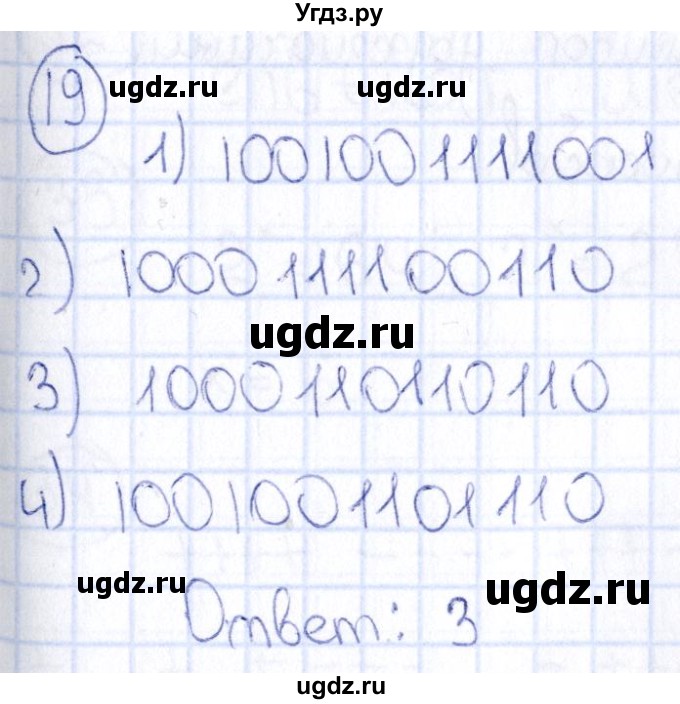 Угдз.ру
19
ugdz.ru ugdz.ru
1) 1001001111001
2) 1000111100110
ugdz.ru
3) 1000110110110
4) 1001001101110
ugdz.ru ugdz.ru
Ответ: 3
ugdz.ru